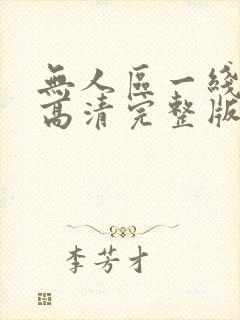 無人區一綫
高清完整版
李芳才